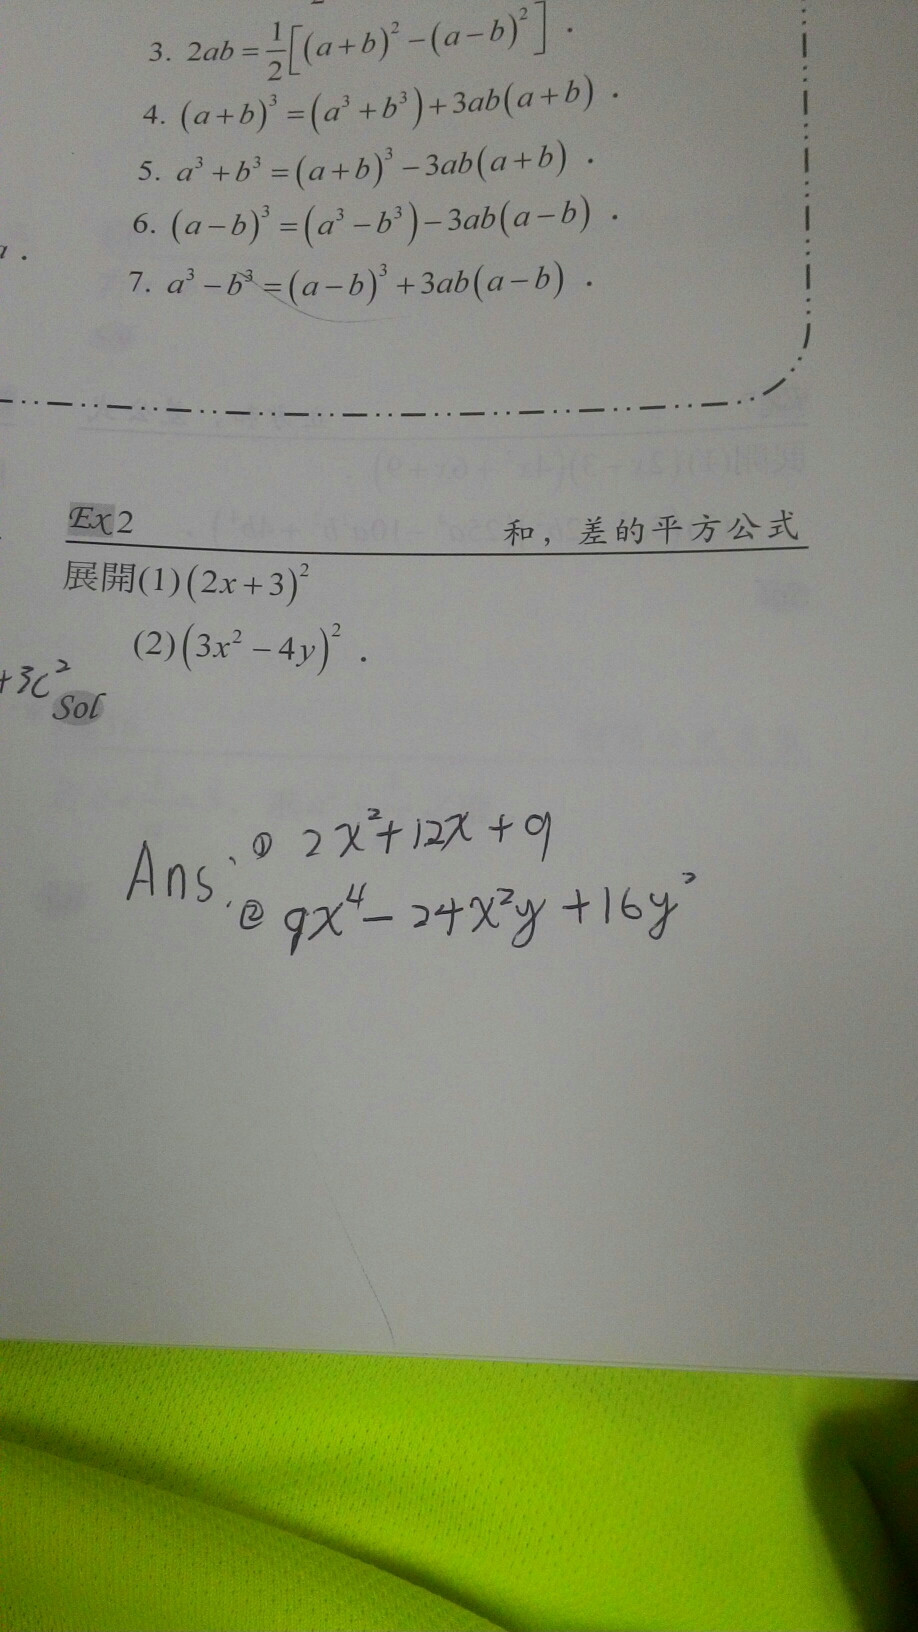 3. 2ab = 1/2[(a+b)² − (a−b)²] .
4. (a+b)³ = (a³+b³)+3ab(a+b) .
5. a³+b³ = (a+b)³−3ab(a+b) .
6. (a−b)³ = (a³−b³)−3ab(a−b) .
7. a³−b³ = (a−b)³+3ab(a−b) .
Ex2 和，差的平方公式
展開(1)(2x+3)²
(2)(3x²−4y)² .
+3c²
Sol
Ans: ① 2x²+12x+9
② 9x⁴−24x²y+16y²